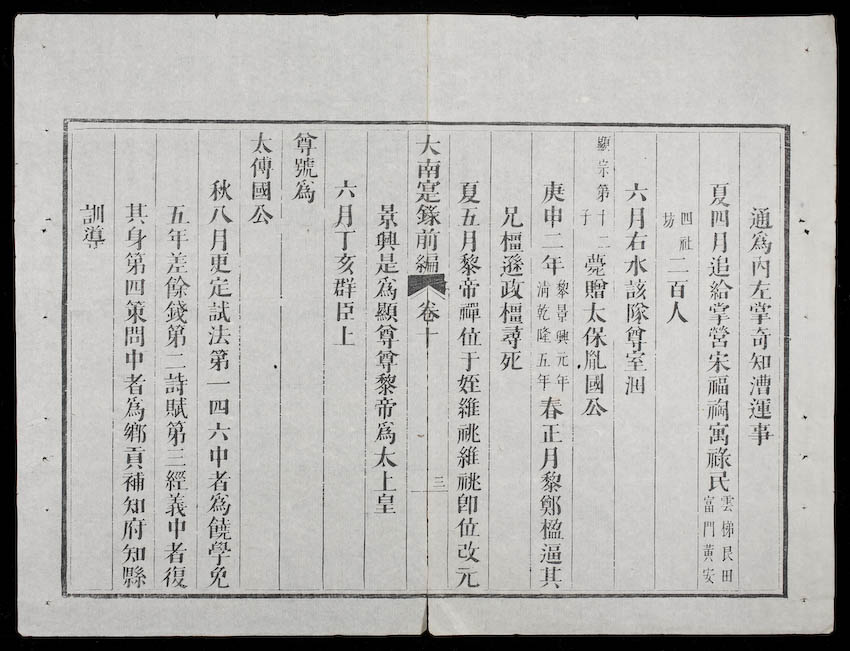 通爲內左掌奇知漕運事
夏四月追給掌營宋福祠寓祿民雲梯艮田富門黃安
四社坊二百人
六月右水該隊尊室泂
顯宗第十二子薨贈太保胤國公
庚申二年黎景興元年清乾隆五年春正月黎鄭楹逼其
兄橿遜政橿尋死
夏五月黎帝禪位于姪維祧維祧卽位改元
大南寔錄前編 卷十 三
景興是爲顯尊尊黎帝爲太上皇
六月丁亥群臣上
尊號爲
太傅國公
秋八月更定試法第一四六中者爲饒學免
五年差餘錢第二詩賦第三經義中者復
其身第四策問中者爲鄉貢補知府知縣
訓導